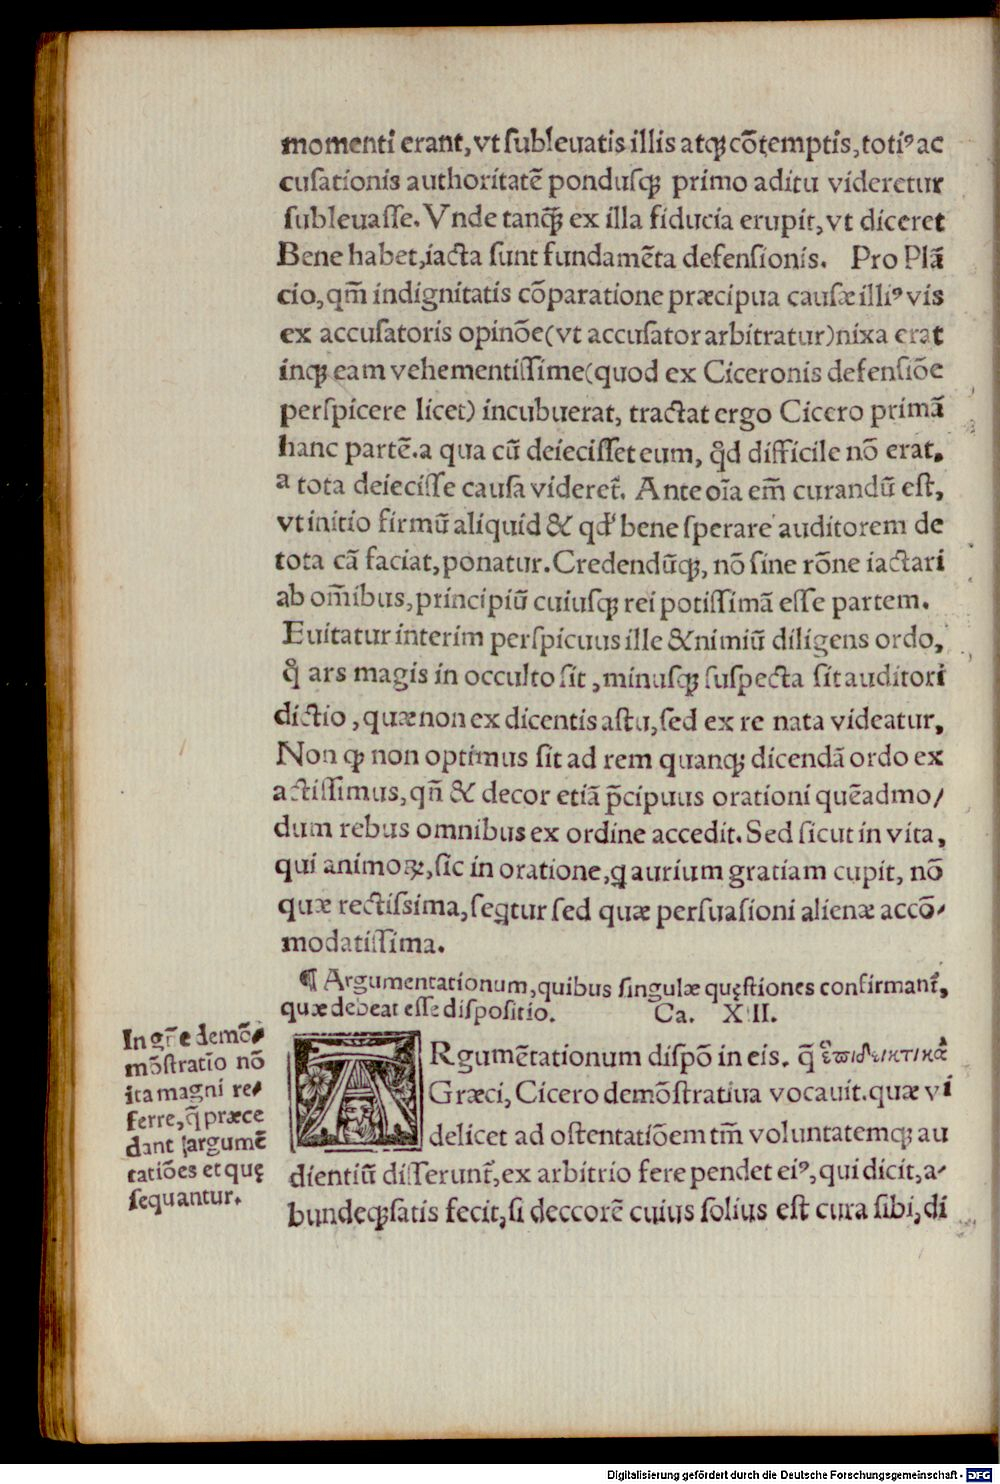 momenti erant, vt subleuatis illis atqꝫ cōtemptis, totiꝰ ac
cusationis authoritatē pondusqꝫ primo aditu videretur
subleuasse. Vnde tanqꝫ̄ ex illa fiducia erupit, vt diceret
Bene habet, iacta sunt fundamēta defensionis. Pro Plā
cio, qm̄ indignitatis cōparatione præcipua causæ illiꝰ vis
ex accusatoris opinōe (vt accusator arbitratur) nixa erat
inqꝫ eam vehementissime (quod ex Ciceronis defensiōe
perspicere licet) incubuerat, tractat ergo Cicero primā
hanc partē. a qua cū deiecisset eum, qd̛ difficile nō erat.
a tota deiecisse causa videret̄. Ante oīa em̄ curandū est,
vt initio firmū aliquid & qd̛ bene sperare auditorem de
tota cā faciat, ponatur. Credendūqꝫ, nō sine rōne iactari
ab om̄ibus, principiū cuiusqꝫ rei potissimā esse partem.
Euitatur interim perspicuus ille & nimiū diligens ordo,
qͦ ars magis in occulto sit, minusqꝫ suspecta sit auditori
dictio, quæ non ex dicentis astu, sed ex re nata videatur,
Non qꝫ non optimus sit ad rem quanqꝫ dicendā ordo ex
actissimus, qn̄ & decor etiā p̄cipuus orationi quēadmo/
dum rebus omnibus ex ordine accedit. Sed sicut in vita,
qui animoꝝ, sic in oratione, q aurium gratiam cupit, nō
quæ rectissima, seqtur sed quæ persuasioni alienæ accō/
modatissima.
¶ Argumentationum, quibus singulæ quęstiones confirmant̄,
quæ debeat esse dispositio. Ca. XIII.
In gr̄e demō/
mōstratio nō
ita magni re/
ferre, q̄ præce
dant argumē
tatiōes et quę
sequantur.
ARgumētationum dispō in eis. q̄ ἐπιδεικτικὰ
Græci, Cicero demōstratiua vocauit. quæ vi
delicet ad ostentatiōem tm̄ voluntatemqꝫ au
dientiū disserunt̄, ex arbitrio fere pendet eiꝰ, qui dicit, a/
bundeqꝫ satis fecit, si deccorē cuius solius est cura sibi, di
Digitalisierung gefördert durch die Deutsche Forschungsgemeinschaft - DFG